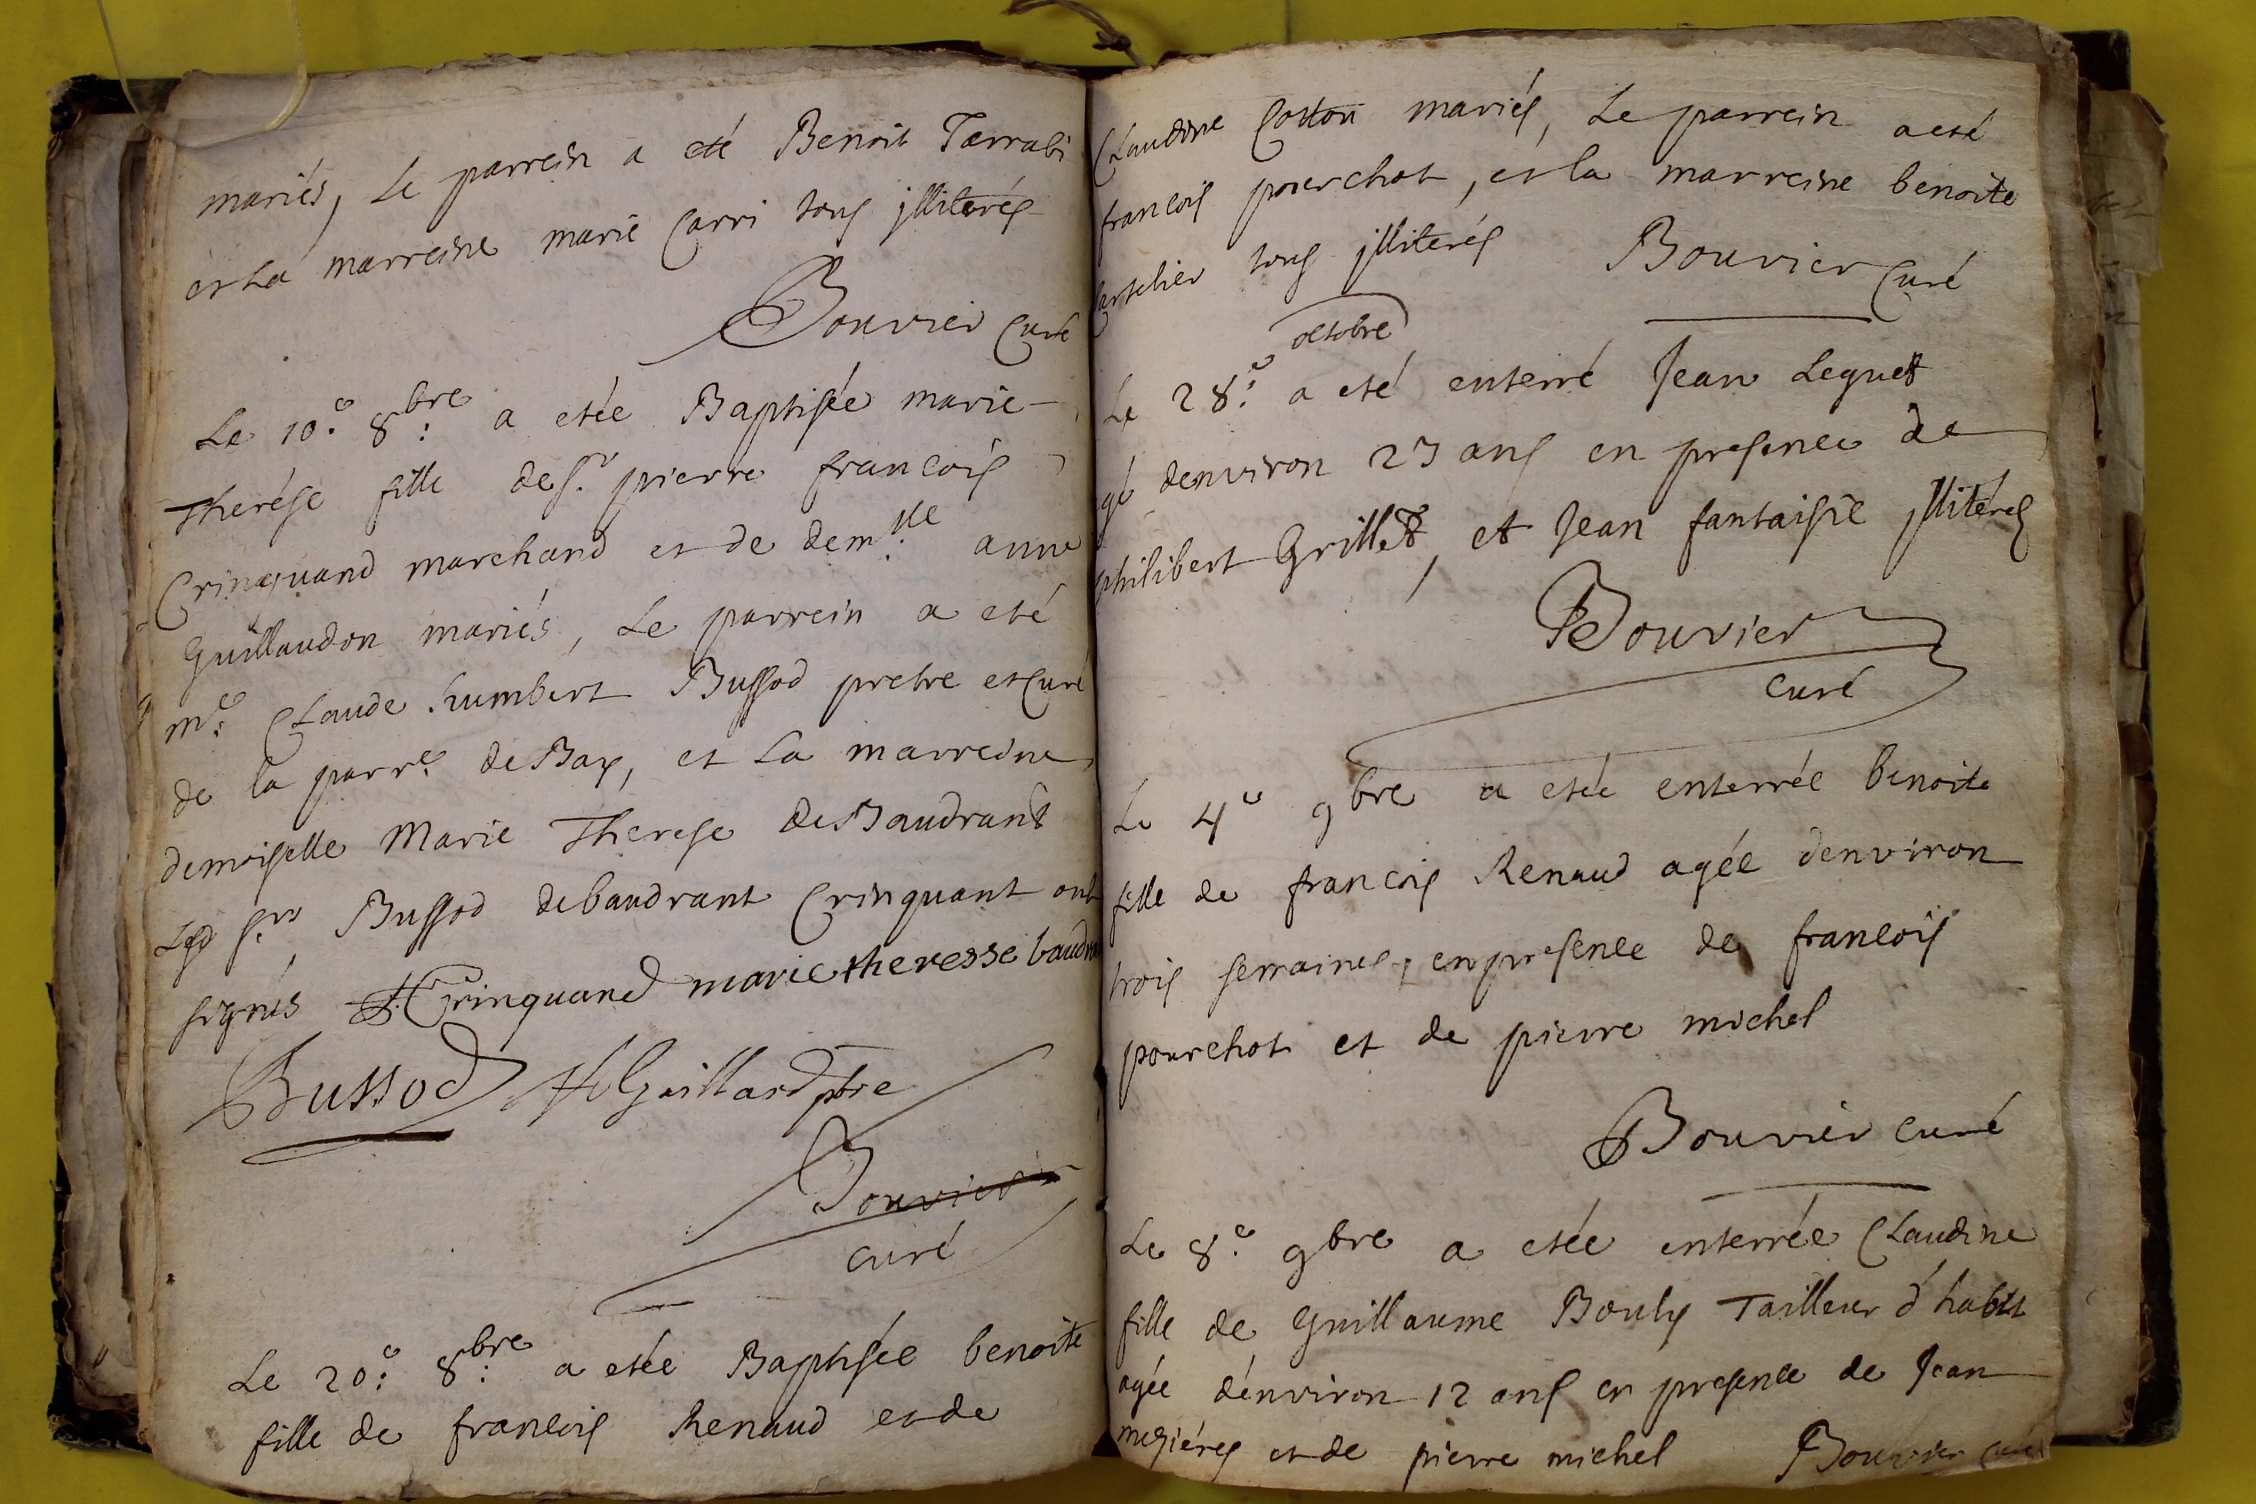 mariés, Le parrein a eté Benoit Tarrabi
et La marreine marie Carri tous jlliterés
Bouvier Curé
Le 10.e 8.bre a etée Baptisée marie
Therése fille de s.r pierre francois
Crinquand marchand et de dem.lle anne
Guillaudon mariés, Le parrein a eté
m.e Claude humbert Bussod pretre et Curé
de la parr.e de Bay, et La marreine
demoiselle Marie Therese de Baudrant
Bussod debaudrant Crinquant ont
signés Crinquand marie theresse
Bussod Guillard pbre
Bouvier
curé
Le 20.e 8.bre a etée Baptisée benoite
fille de francois Renaud et de
Claudine Cotton mariés, Le parrein a eté
francois pourchot, et la marreine benoite
tous jlliterés Bouvier Curé
octobre
Le 28.e a eté enterré Jean Leguet
gé denviron 23 ans en presence de
philibert Grillet, et Jean fantaisie jlliterés
Bouvier
curé
Le 4e 9bre a etée enterrée benoite
fille de francois Renaud agée denviron
trois semaines, en presence de francois
pourchot et de pierre michel
Bouvier curé
Le 8.e 9bre a etée enterrée Claudine
fille de Guillaume Bouly Tailleur d'habit
agée dénviron 12 ans en presence de Jean
meziéres et de pierre michel Bouvier curé